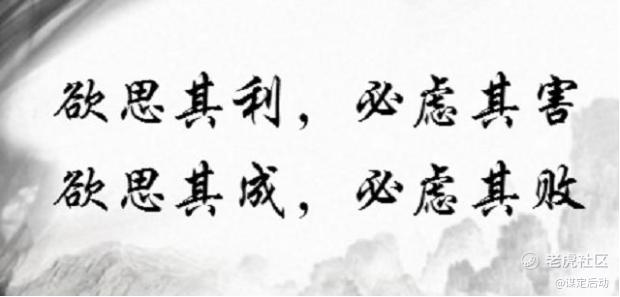 欲思其利，必虑其害
欲思其成，必虑其败
老虎社区
@谋定后动